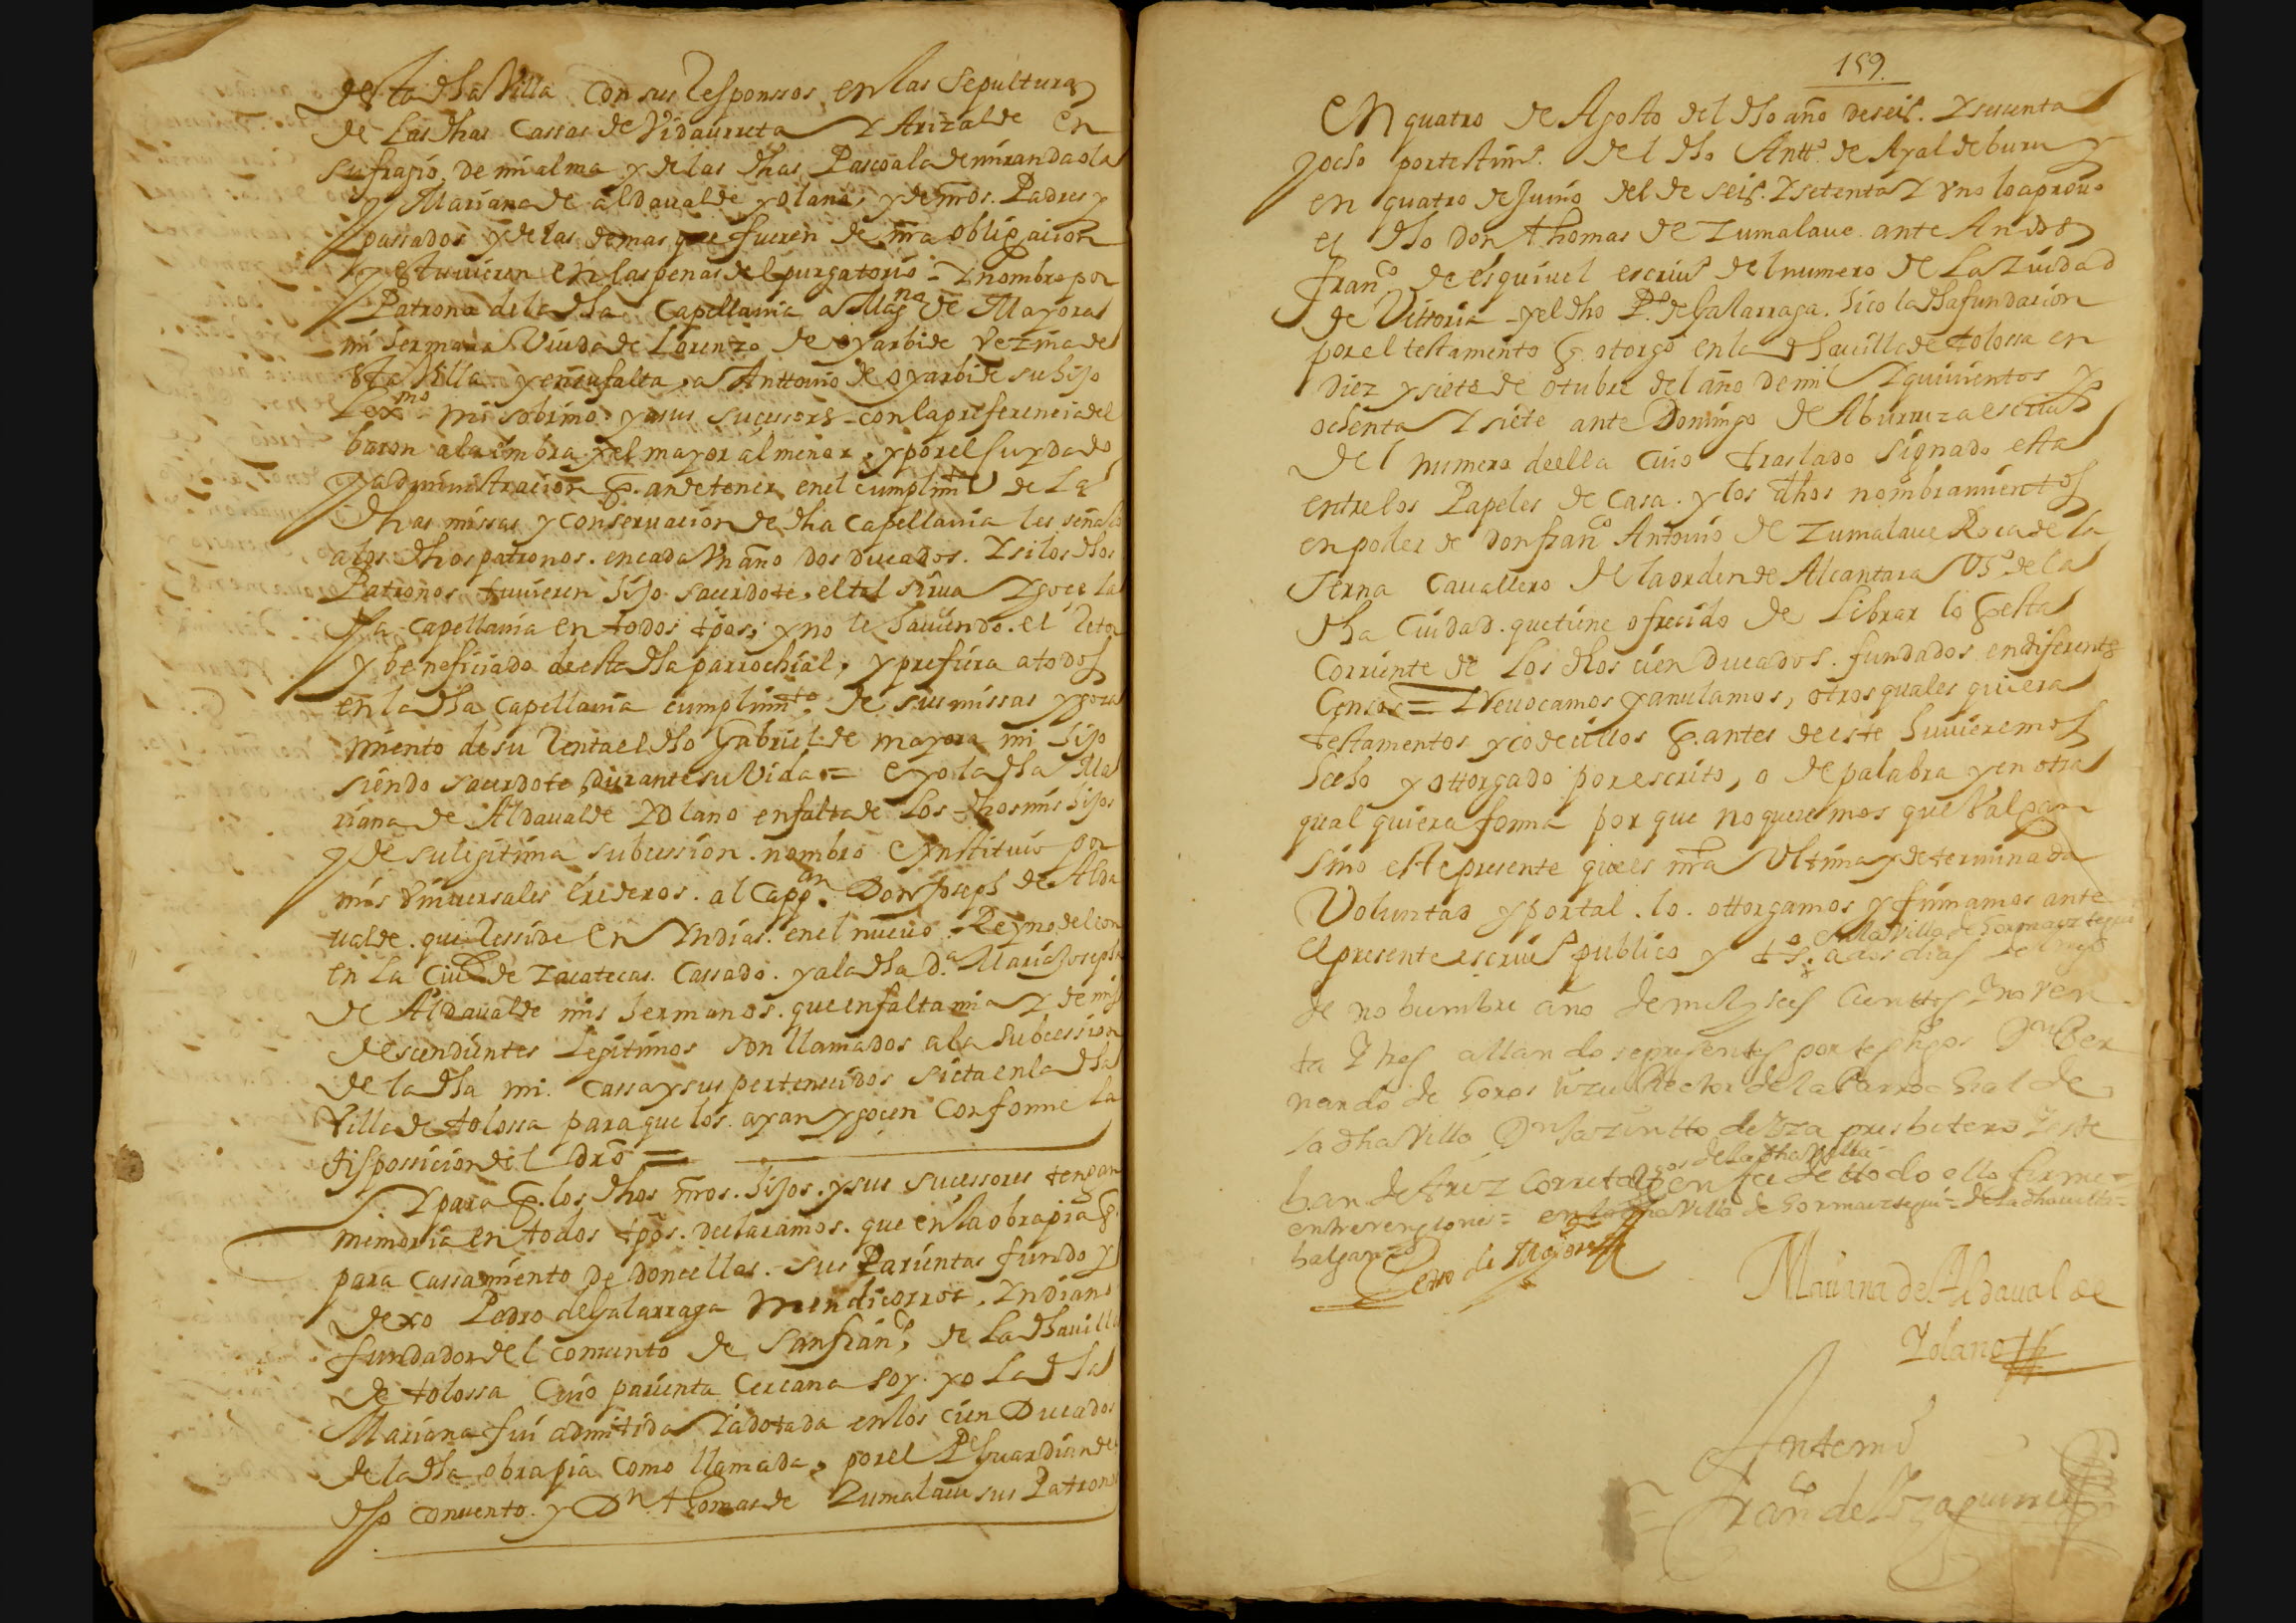 desta dha Villa con sus Responssos en las sepulturas
de las dhas cassas de Vidaurreta y Arizalde en
sufragio de mi alma y de las dhas Pascoala de mirandaola
y Mariana de aldaualde yolano, y de nros. Padres y
passados y de las demas que fueren de nra obligacion
y estuuieren en las penas del purgatorio = Y nombro por
Patrona de la dha Capellania a Mag.na de Mayora
mi hermana Viuda de Lorenzo de oyarbide vezina de
esta Villa y en su falta, a Anttonio de oyarbide su hijo
lex.mo mi sobrino. y a sus sucessores con la preferencia del
baron a la embra y el mayor al menor, y por el cuydado
y administracion q. an de tener en el cumplim.to de las
dhas missas y conseruacion de dha capellania les señalo
a los dhos patronos. en cada Vn año dos ducados. Y si los dhos
Patronos tuuieren hijo sacerdote, el tal sirua y goce la
dha capellania en todos tpos; y no le hauiendo. el Retor
y beneficiado de esta dha parrochial, y prefiera a todos
en la dha Capellania cumplim.to de sus missas y goza
miento de su Renta el dho Gabriel de mayora mi hijo
siendo sacerdote, durante su Vida = e yo la dha Ma
riana de Aldaualde Yolano en falta de los dhos mis hijos
y de su legitima subcession. nombro e ynstituio por
mis Vniuersales erederos. al Capp.an Don Joseph de Alda
ualde. que Resside en Yndias. en el nueuo Reyno de leon
en la Ciud de Zacatecas. Cassado. y a la dha D.a Maria Josepha
de Aldaualde mis hermanos. que en falta mia y de mis
descendientes Legitimos son llamados a la subcession
de la dha mi. Cassa y sus pertenecidos sieta en la dha
Villa de tolossa para que los. ayan y gocen conforme la
disposicion del dro =
Y para q. los dhos nros. hijos. y sus sucessores tengan
memoria en todos tpos. declaramos. que en la obra pia q.
para cassamiento de doncellas. sus Parientas fundo y
dexo Pedro de Galarraga mendicorroz. Yndiano
fundador del conuento de san fran.co de la dha villa
de tolossa Cuio parienta cercana soy yo la dha
Mariana fui admitida y adotada en los cien Ducados
de la dha obra pia como llamada, por el P.e Guardian del
dho conuento. y D.n thomas de Zumalaue sus Patronos
159.
En quatro de Agosto del dho año de seis. Y sesenta
y ocho por testim.o del dho Antt.o de Ayaldeburu y
en quatro de Junio del de seis. Y setenta y Vno lo aprouo
el dho Don thomas de Zumalaue ante Andres
fran.co de esquiuel escriu.o del numero de La Ziudad
de Vittoria - y el dho P.o de Galarraga. hico la dha fundacion
por el testamento q. otorgo en la dha villa de tolossa en
diez y siete de otubre del año de mil Y quinientos y
ochenta Y siete ante Domingo de Aburruza escriu.o
del numero de ella cuio traslado signado esta
entre los Papeles de casa. y los dhos nombramientos
en poder de don fran.co Antonio de Zumalaue Roca de la
Serna Cauallero de la orden de Alcantara V.o de la
dha Ciudad. que tiene ofrecido de librar lo q esta
corriente de los dhos cien ducados. fundados en diferentes
Censos = Y Reuocamos y anulamos, otros quales quiera
testamentos y codecillos q. antes de este huuieremos
hecho y ottorgado por escrito, o de palabra y en otra
qual quiera forma por que no queremos que Valgan
sino este presente que es nra Vltima y determinada
Voluntad y por tal. lo. ottorgamos y firmamos ante
en la villa de hormaiztegui
el presente escriu.o publico y t.os a dos dias del mes
de nobiembre año de mil y seis cienttos y noven
ta y tres allandose presentes por testigos D.n Ber
nardo de Rector de la Parrochial de
la dha Villa D.n Jazintto de Yza presbitero y este
vos de la dha Villa
ban de Arriz en fee de ttodo ello firme
entrerenglones = en la dha villa de hormaiztegui = de la dha villa =
balgan =
Pedro de Mayora
Mariana de Aldaualde
Yolano
Ante mi
Fran.co de Yzaguirre